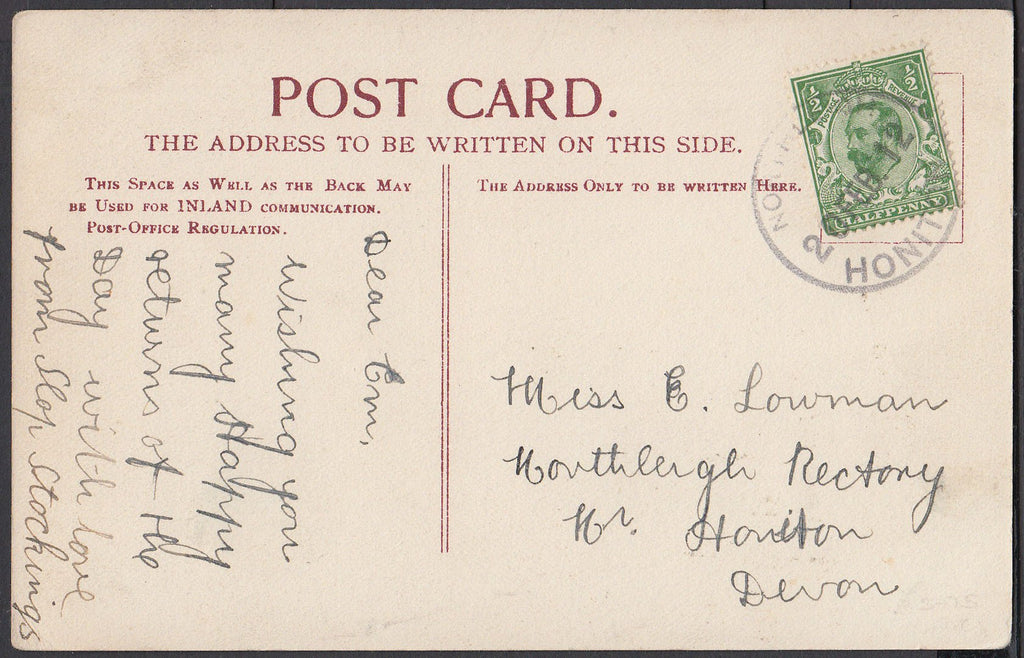 POST CARD.
THE ADDRESS TO BE WRITTEN ON THIS SIDE.
THIS SPACE AS WELL AS THE BACK MAY
BE USED FOR INLAND COMMUNICATION.
POST-OFFICE REGULATION.
THE ADDRESS ONLY TO BE WRITTEN HERE.
Dear Em,
Wishing you
many Happy
returns of the
Day with love
from Slop Stockings
Miss E. Lowman
Northleigh Rectory
Nr. Honiton
Devon
½ ½
POSTAGE REVENUE
HALFPENNY
MR 12
HONIT